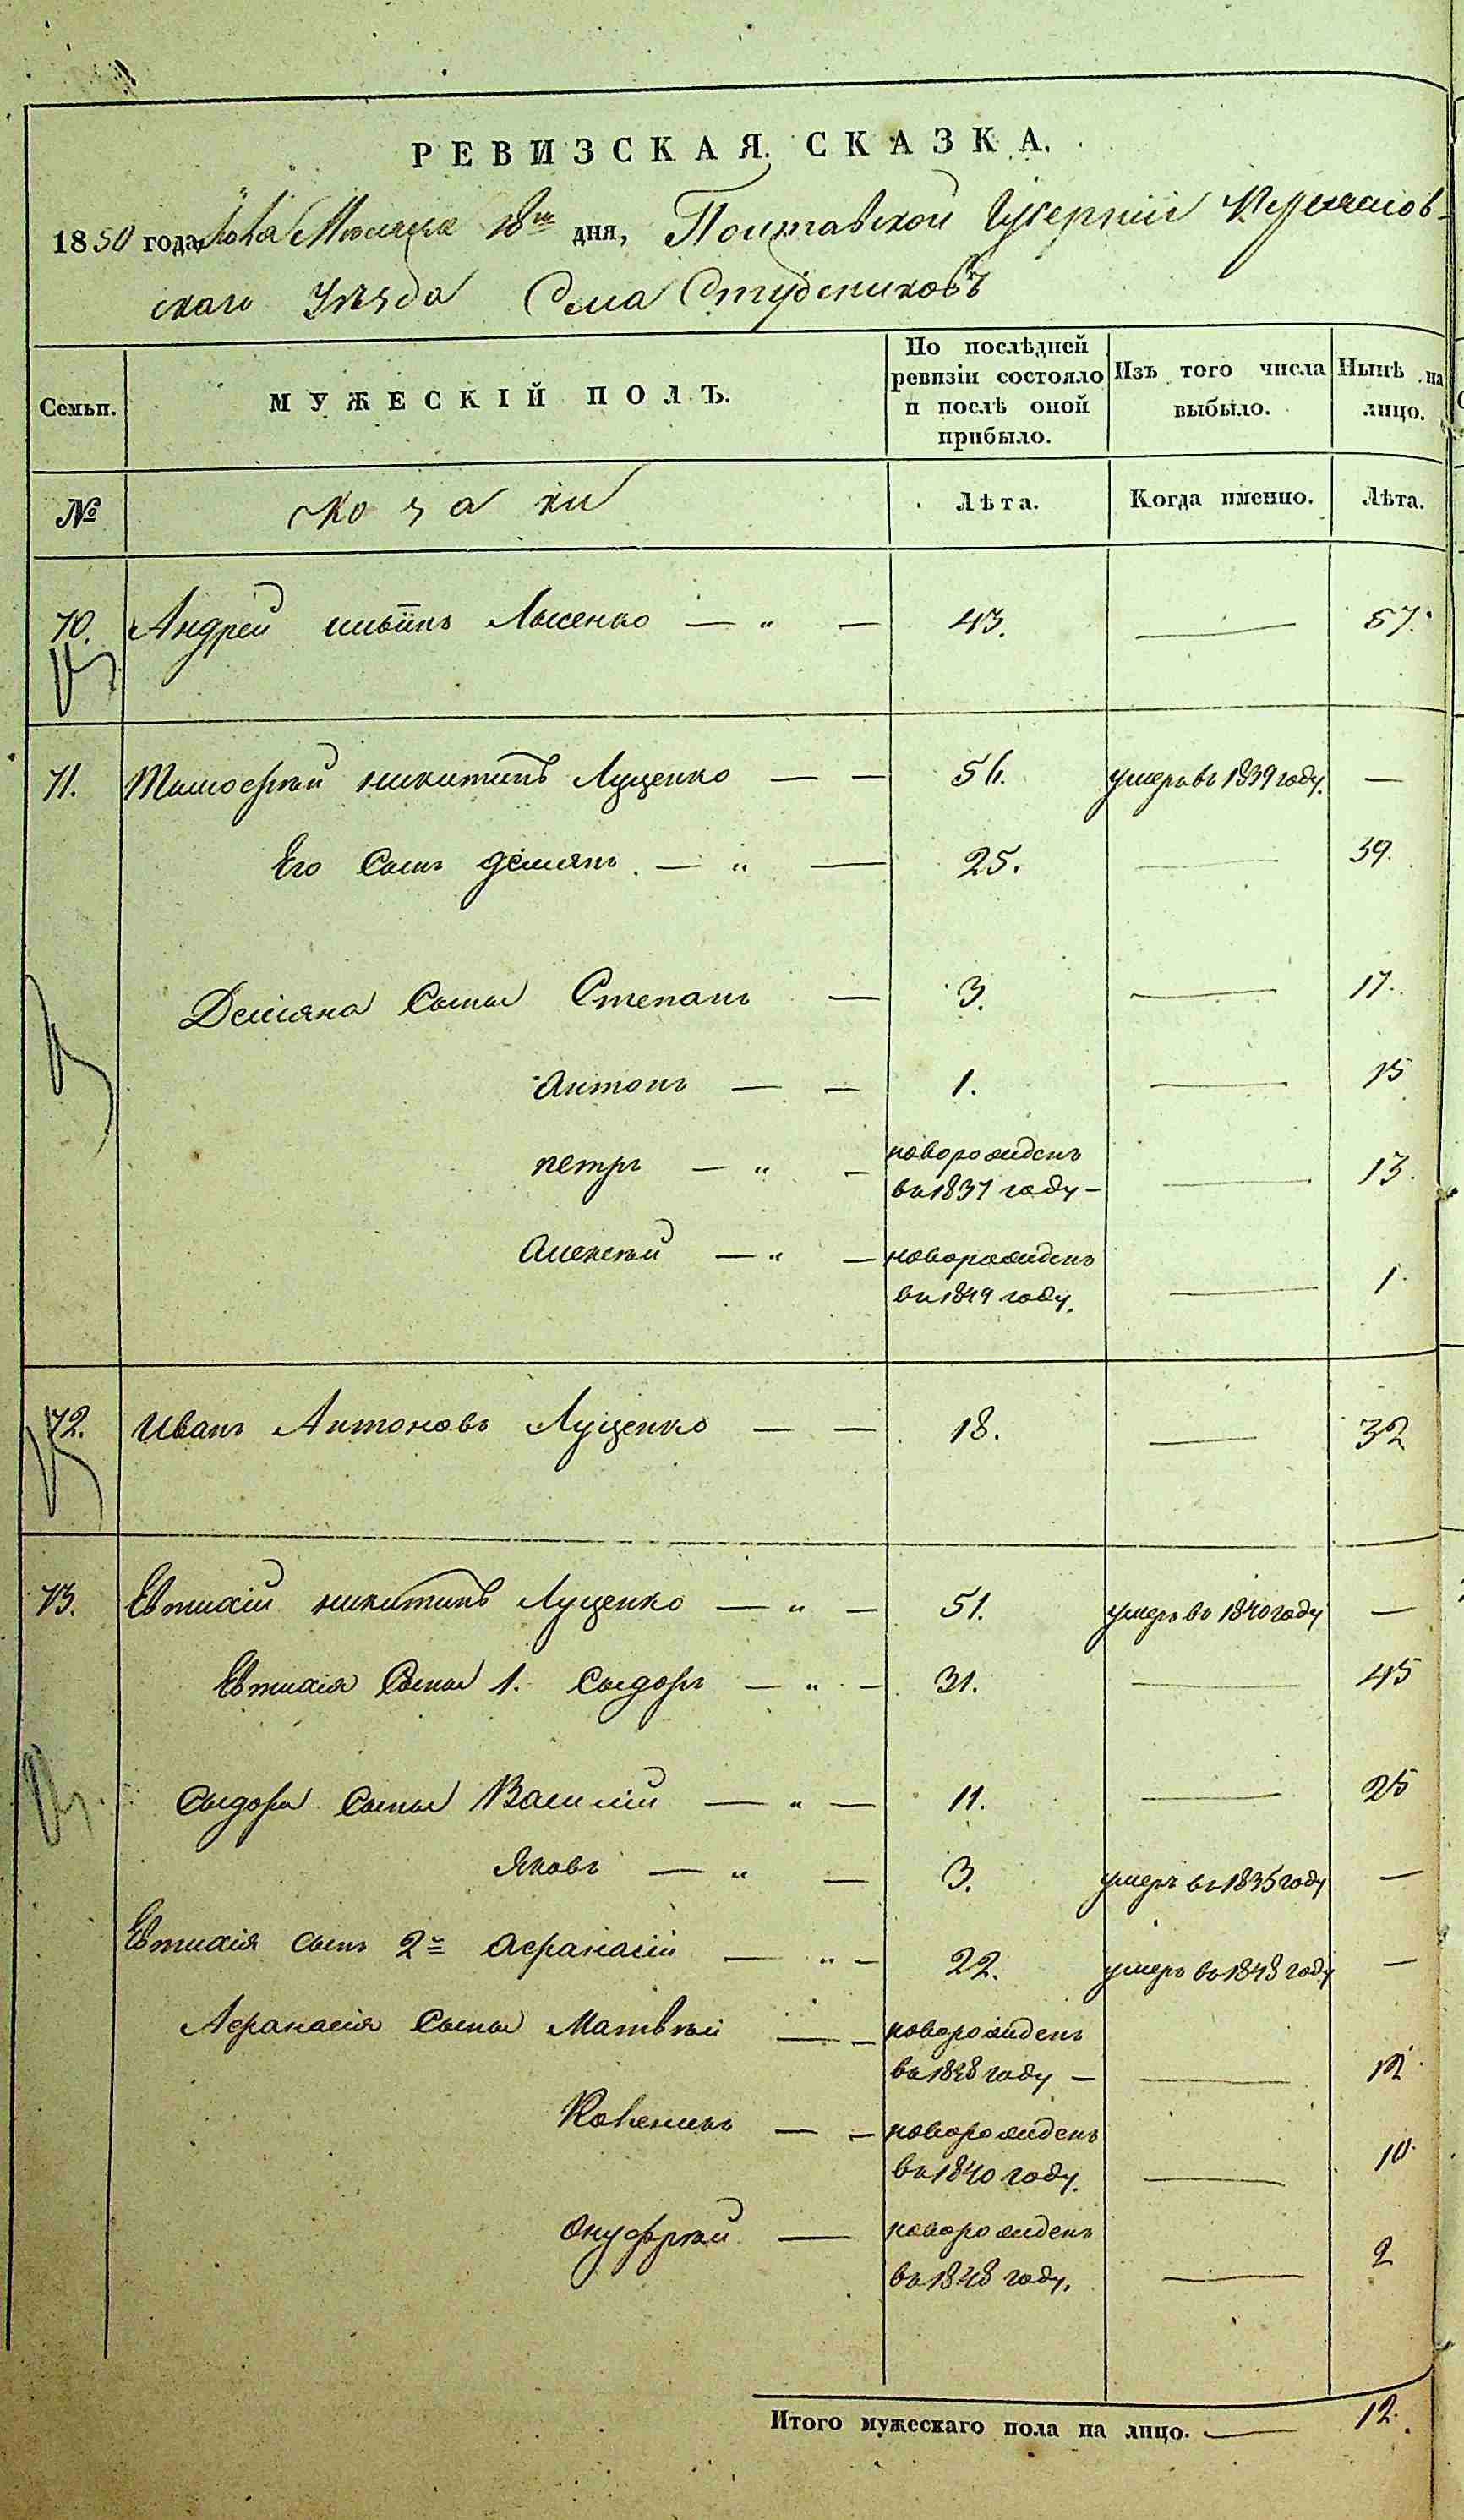 РЕВИЗСКАЯ СКАЗКА.
1850 года Мѣсяца 18го дня, Полтавской Губерніи
скаго Уѣзда Села Студениковъ
Семьи. МУЖЕСКІЙ ПОЛЪ. По послѣдней ревизіи состояло и послѣ оной прибыло. Изъ того числа выбыло. Нынѣ на лицо.
№ козаки Лѣта. Когда именно. Лѣта.
70. Андрей ильинъ Лысенко — „ — 43. — 57.
71. Тимофѣй никитинъ Луценко — — 56. умеръ въ 1839 году. —
Его Сынъ демянъ. — „ — 25. — 39.
Демяна Сыны Степанъ — 3. — 17.
Антонъ — — 1. — 15
петръ — „ — новорожденъ
въ 1837 году — — 13.
Алексѣй — „ — новорожденъ
въ 1849 году. — 1.
72. Иванъ Антоновъ Луценко — — 18. — 32
73. Евтихій никитинъ Луценко — „ — 51. умеръ въ 1840 году —
Евтихія Сыны 1. Сыдоръ — „ — 31. — 45
Сыдора Сыны Василій — „ — 11. — 25
Яковъ — „ — 3. умеръ въ 1835 году —
Евтихія сынъ 2й Афанасій — „ — 22. умеръ въ 1848 году —
Афанасія Сыны Матвѣй — — новорожденъ
въ 1838 году — — 12.
— — новорожденъ
въ 1840 году. — 10.
Онуфрѣй — новорожденъ
въ 1848 году. — 2
Итого мужескаго пола на лицо. — 12.